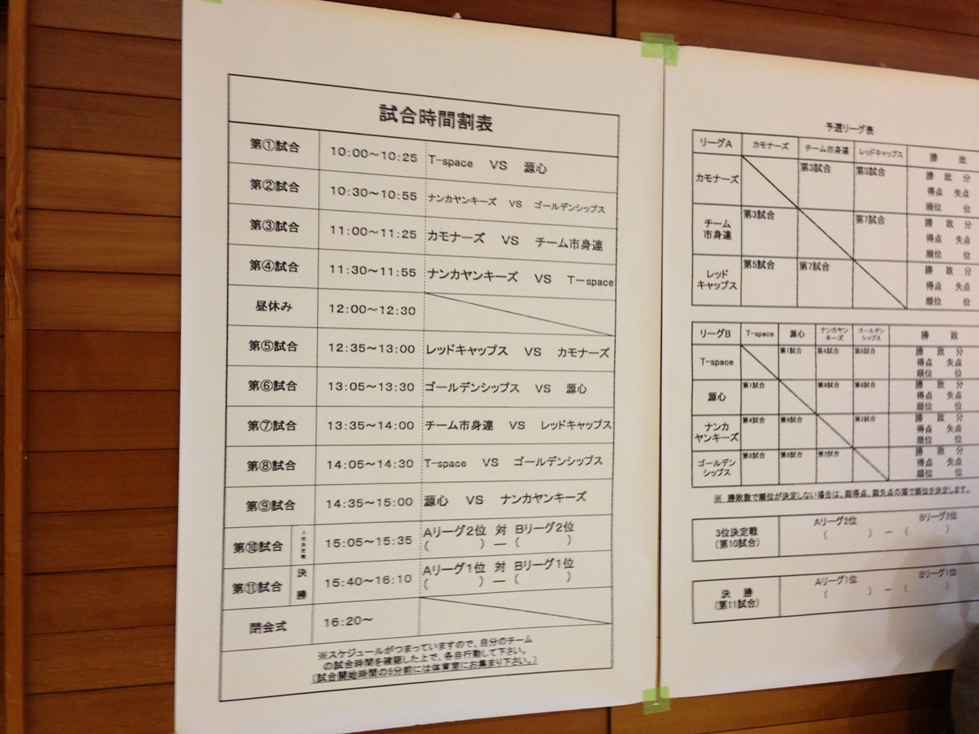 試合時間割表
第①試合 10:00～10:25 T-space VS 源心
第②試合 10:30～10:55 ナンカヤンキーズ VS ゴールデンシップス
第③試合 11:00～11:25 カモナーズ VS チーム市身連
第④試合 11:30～11:55 ナンカヤンキーズ VS T－space
昼休み 12:00～12:30
第⑤試合 12:35～13:00 レッドキャップス VS カモナーズ
第⑥試合 13:05～13:30 ゴールデンシップス VS 源心
第⑦試合 13:35～14:00 チーム市身連 VS レッドキャップス
第⑧試合 14:05～14:30 T-space VS ゴールデンシップス
第⑨試合 14:35～15:00 源心 VS ナンカヤンキーズ
第⑩試合 15:05～15:35 Aリーグ2位 対 Bリーグ2位
( ) ― ( )
第⑪試合 決勝 15:40～16:10 Aリーグ1位 対 Bリーグ1位
( ) ― ( )
閉会式 16:20～
※スケジュールがつまっていますので、自分のチーム
の試合時間を確認した上で、各自行動して下さい。
(試合開始時間の5分前には体育室にお集まり下さい。)
予選リーグ表
リーグA カモナーズ チーム市身連 レッドキャップス 勝 敗
カモナーズ 第3試合 第5試合 勝 敗 分
得点 失点
順位 位
チーム
市身連 第3試合 第7試合 勝 敗 分
得点 失点
順位 位
レッド
キャップス 第5試合 第7試合 勝 敗 分
得点 失点
順位 位
リーグB T-space 源心 ナンカヤンキーズ ゴールデンシップス 勝 敗
T-space 第1試合 第4試合 第8試合 勝 敗 分
得点 失点
順位 位
源心 第1試合 第9試合 第6試合 勝 敗 分
得点 失点
順位 位
ナンカ
ヤンキーズ 第4試合 第9試合 第2試合 勝 敗 分
得点 失点
順位 位
ゴールデン
シップス 第8試合 第6試合 第2試合 勝 敗 分
得点 失点
順位 位
※ 勝敗数で順位が決定しない場合は、総得点、総失点の順で順位を決定します。
3位決定戦
(第10試合) Aリーグ2位 Bリーグ2位
( ) － (
決 勝
(第11試合) Aリーグ1位 Bリーグ1位
( ) － (